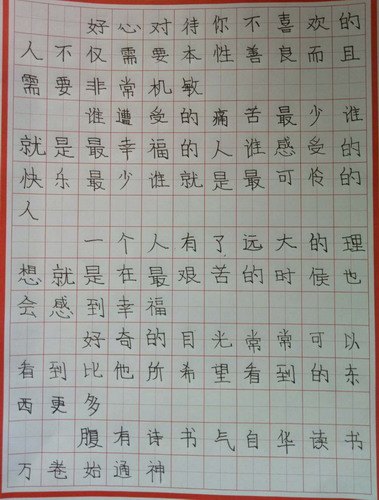 好心对待你不喜欢的
人不仅需要本性善良而且
需要非常机敏
谁遭受的痛苦最少谁
就是最幸福的人谁感受的
快乐最少谁就是最可怜的
人
一个人有了远大的理
想就是在最艰苦的时候也
会感到幸福
好奇的目光常常可以
看到比他所希望看到的东
西更多
腹有诗书气自华读书
万卷始通神